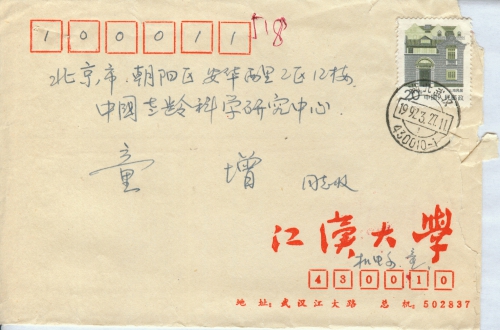 100011
518
北京市.朝阳区安华西里2区12楼
中國老龄科学研究中心
童 增 同志收
20
1992.3.27.11
430010
江漢大學
430010
地址:武汉江大路 总机:502837